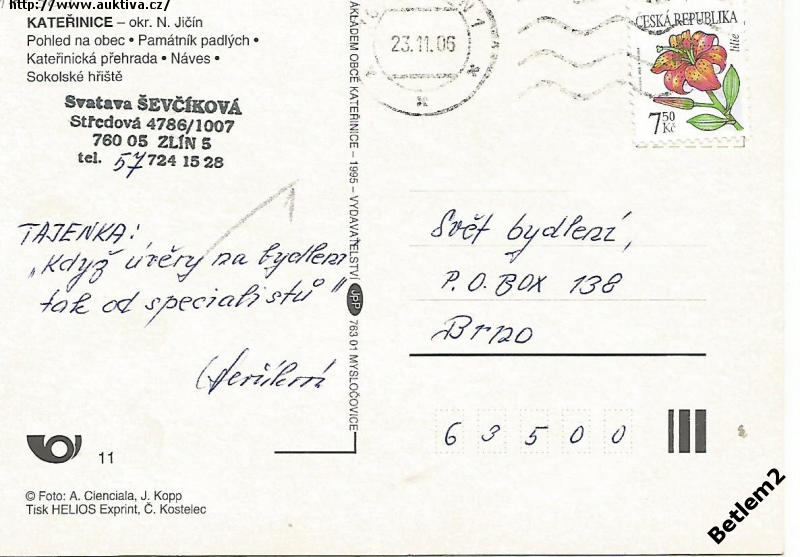 http://www.auktiva.cz/
KATEŘINICE – okr. N. Jičín
Pohled na obec • Památník padlých •
Kateřinická přehrada • Náves •
Sokolské hřiště
Svatava ŠEVČÍKOVÁ
Středová 4786/1007
760 05 ZLÍN 5
tel. 57 724 15 28
TAJENKA:
„Když úvěry na bydlení
tak od specialistů"
11
© Foto: A. Cienciala, J. Kopp
Tisk HELIOS Exprint, Č. Kostelec
NÁKLADEM OBCE KATEŘINICE – 1995 – VYDAVATELSTVÍ JPP 763 01 MYSLOČOVICE
23.11.06
ČESKÁ REPUBLIKA
lilie
7,50 Kč
Svět bydlení,
P.O. BOX 138
Brno
63500
Betlem2